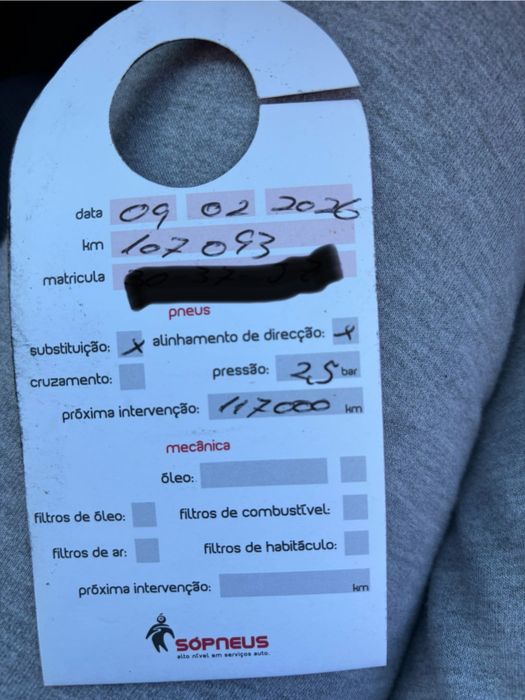 data 09 02 2026
km 107 093
matricula
pneus
substituição: x alinhamento de direcção: x
cruzamento: pressão: 2,5 bar
próxima intervenção: 117000 km
mecânica
óleo:
filtros de óleo: filtros de combustível:
filtros de ar: filtros de habitáculo:
próxima intervenção: km
SÓPNEUS
alto nível em serviços auto.